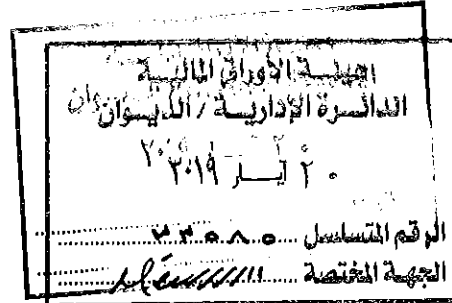 هيئة الأوراق المالية
الدائرة الإدارية / الديوان
٢٠ أيار ٢٠١٩
الرقم المتسلسل
الجهة المختصة